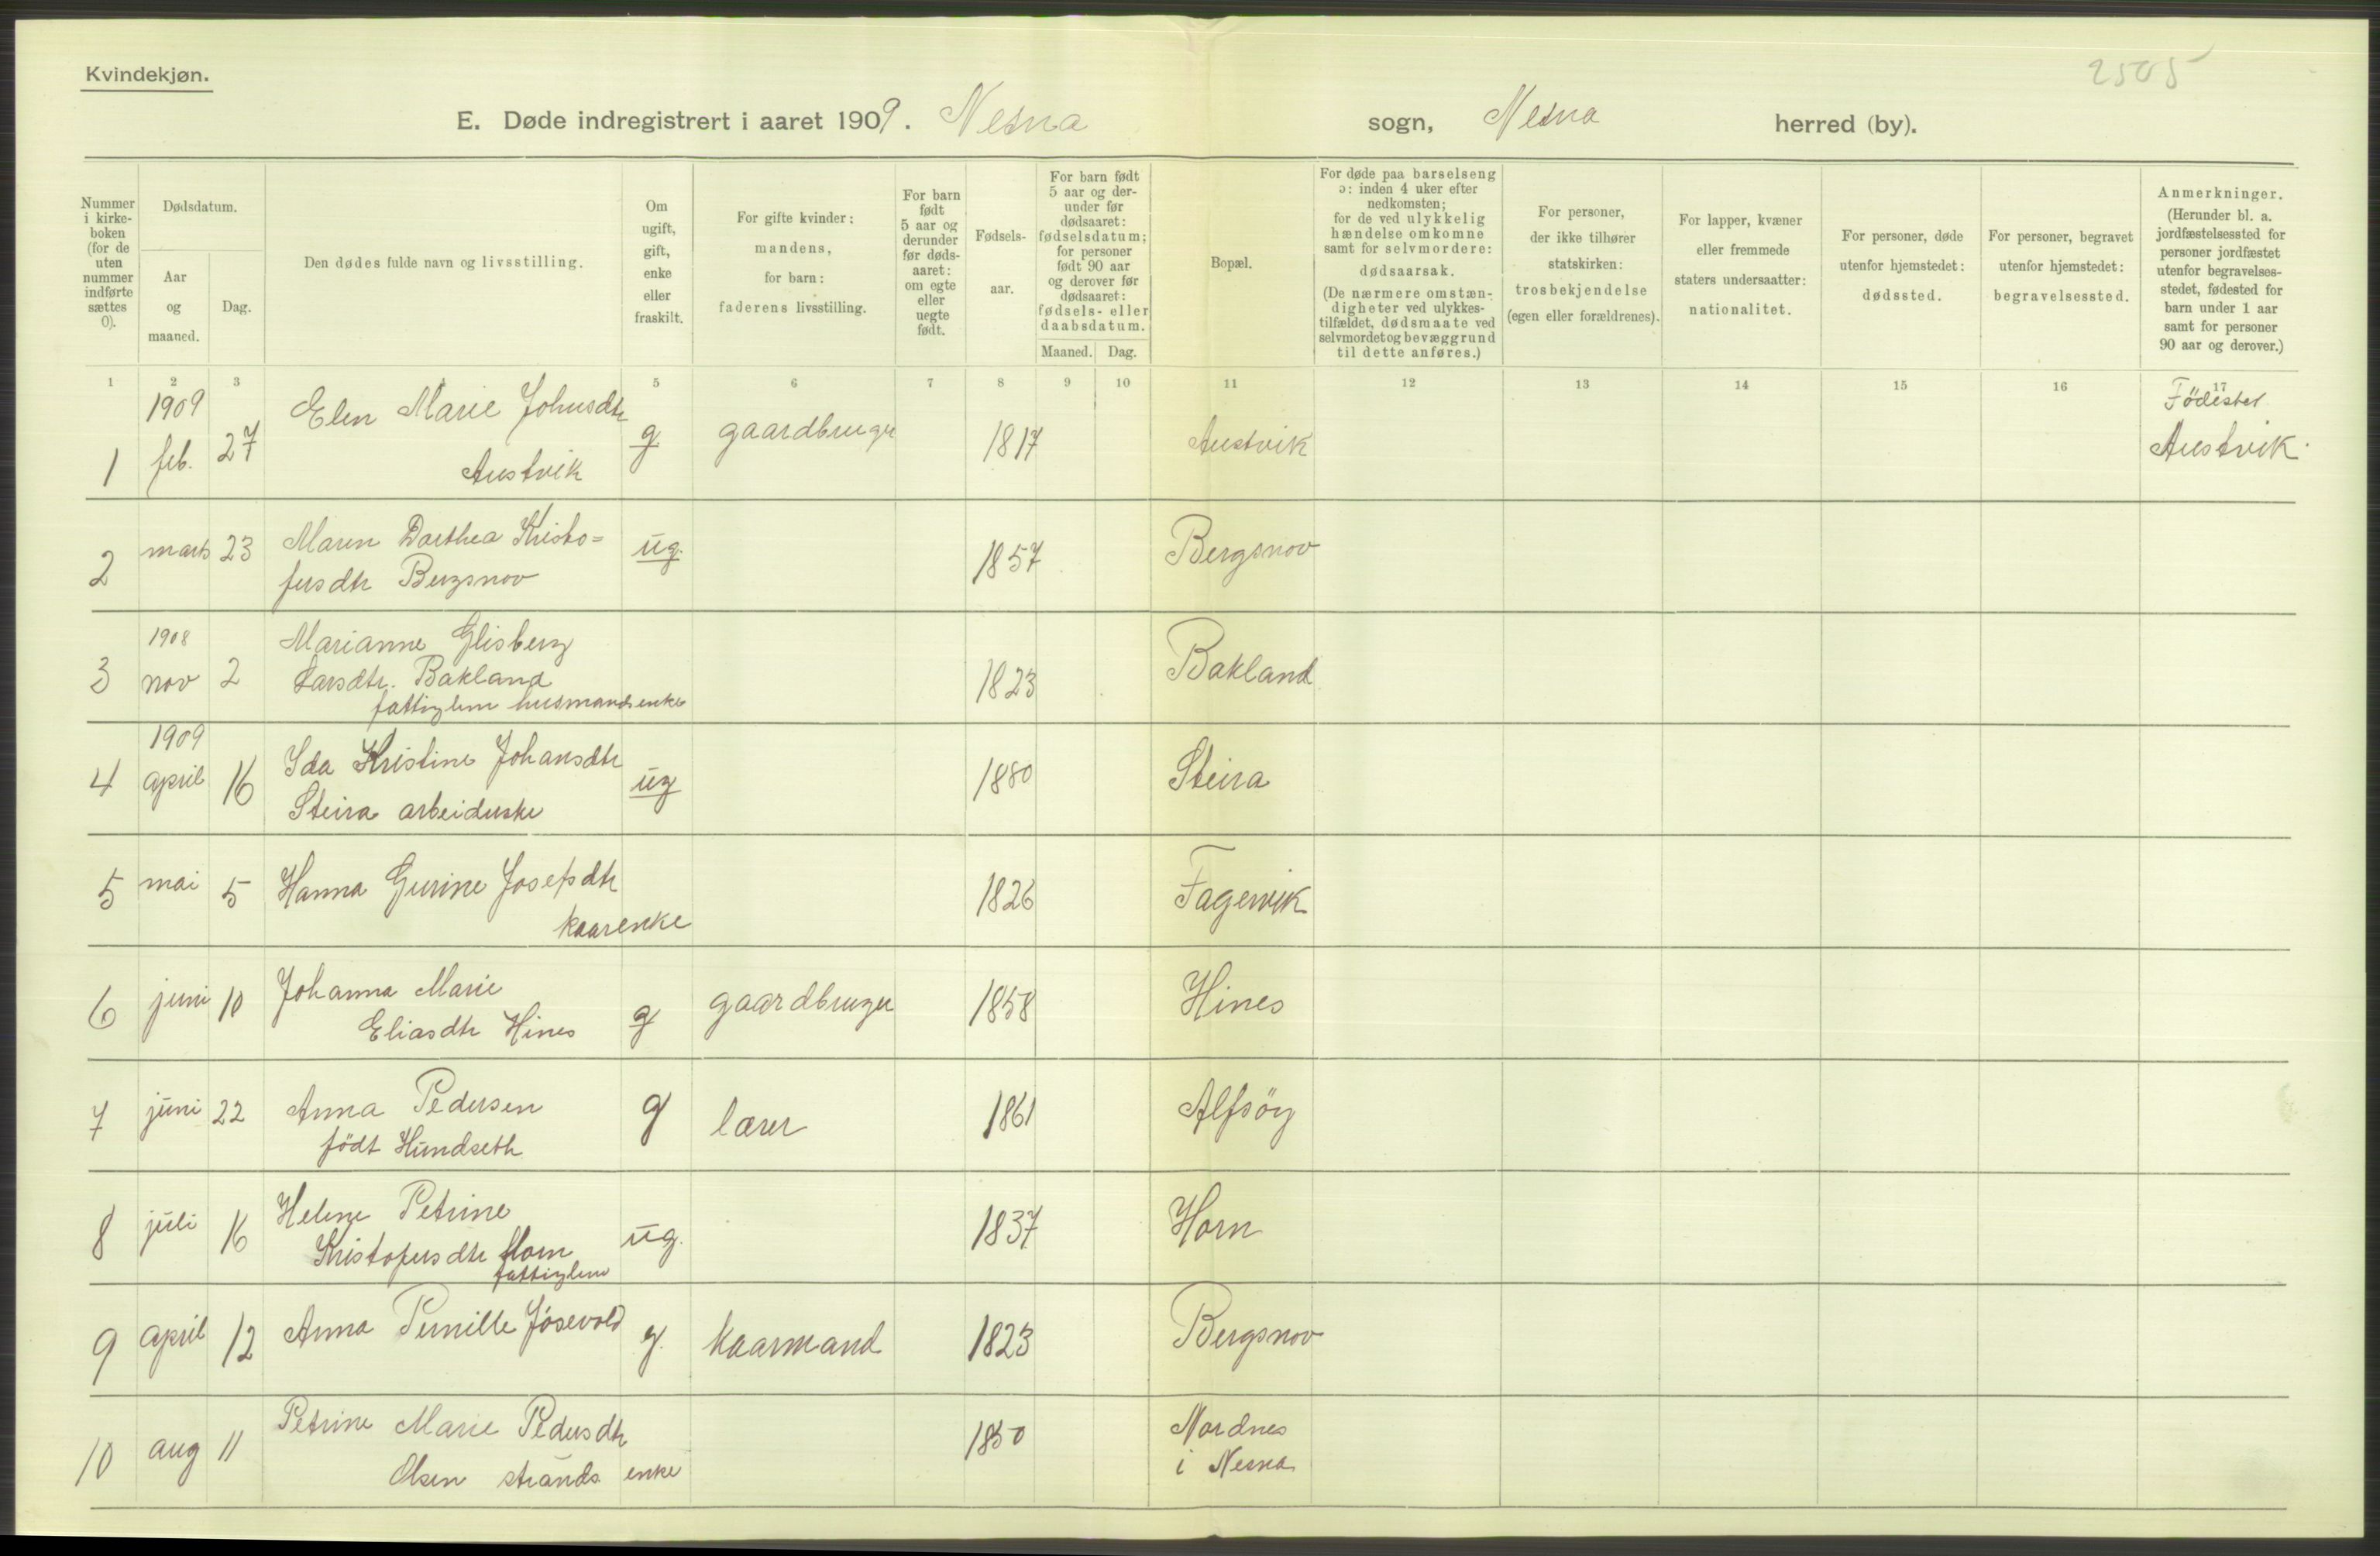 Kvindekjøn.
2505
E. Døde indregistrert i aaret 1909. Nesna sogn, Nesna herred (by).
Nummer i kirke-boken (for de uten nummer indførte sættes 0).
Dødsdatum.
Aar og maaned.
Dag.
Den dødes fulde navn og livsstilling.
Om ugift, gift, enke eller fraskilt.
For gifte kvinder: mandens, for barn: faderens livsstilling.
For barn født 5 aar og derunder før døds-aaret: om egte eller uegte født.
Fødsels-aar.
For barn født 5 aar og der-under før dødsaaret: fødselsdatum; for personer født 90 aar og derover før dødsaaret: fødsels- eller daabsdatum.
Maaned.
Dag.
Bopæl.
For døde paa barselseng ɔ: inden 4 uker efter nedkomsten; for de ved ulykkelig hændelse omkomne samt for selvmordere: dødsaarsak. (De nærmere omstæn-digheter ved ulykkes-tilfældet, dødsmaate ved selvmordet og bevæggrund til dette anføres.)
For personer, der ikke tilhører statskirken: trosbekjendelse (egen eller forældrenes).
For lapper, kvæner eller fremmede staters undersaatter: nationalitet.
For personer, døde utenfor hjemstedet: dødssted.
For personer, begravet utenfor hjemstedet: begravelsessted.
Anmerkninger. (Herunder bl. a. jordfæstelsessted for personer jordfæstet utenfor begravelses-stedet, fødested for barn under 1 aar samt for personer 90 aar og derover.)
1 2 3 5 6 7 8 9 10 11 12 13 14 15 16 17
1 1909 feb. 27 Elen Marie Johnsdtr Austvik g gaardbruger 1817 Austvik Födested Austvik.
2 marts 23 Maren Dorthea Kristo=
fersdtr Bergsnov ug. 1857 Bergsnov
3 1908 nov 2 Marianne Glisberg
Larsdtr. Bakland
fattiglem husmandsenke 1823 Bakland
4 1909 april 16 Ida Kristine Johansdtr
Steira arbeiderske ug 1880 Steira
5 mai 5 Hanna Gurine Josefsdtr
kaarenke 1826 Fagervik
6 juni 10 Johanna Marie
Eliasdtr Hines g gaardbruger 1858 Hines
7 juni 22 Anna Pedersen
födt Hundseth g lærer 1861 Alfsöy
8 juli 16 Helene Petrine
Kristofersdtr Horn
fattiglem ug. 1837 Horn
9 april 12 Anna Pernille Jösevold g. kaarmand 1823 Bergsnov
10 aug 11 Petrine Marie Pedersdtr
Olsen strands enke 1850 Nordnes
i Nesna